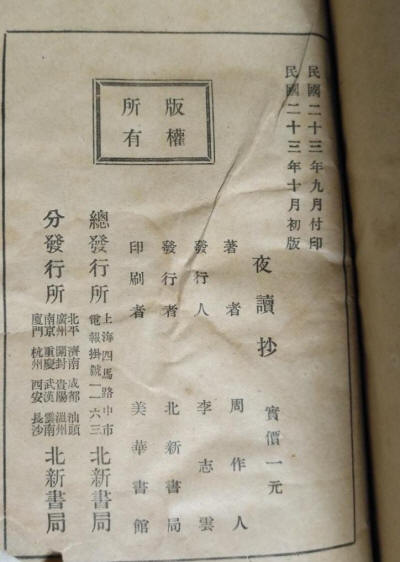 民國二十三年九月付印
民國二十三年十月初版
夜讀抄
實價一元
著者 周作人
發行人 李志雲
發行者 北新書局
印刷者 美華書館
版權
所有
總發行所 上海四馬路中市 北新書局
電報掛號一一六三
分發行所 北平 濟南 成都 汕頭 北新書局
廣州 開封 貴陽 溫州
南京 重慶 武漢 雲南
廈門 杭州 西安 長沙